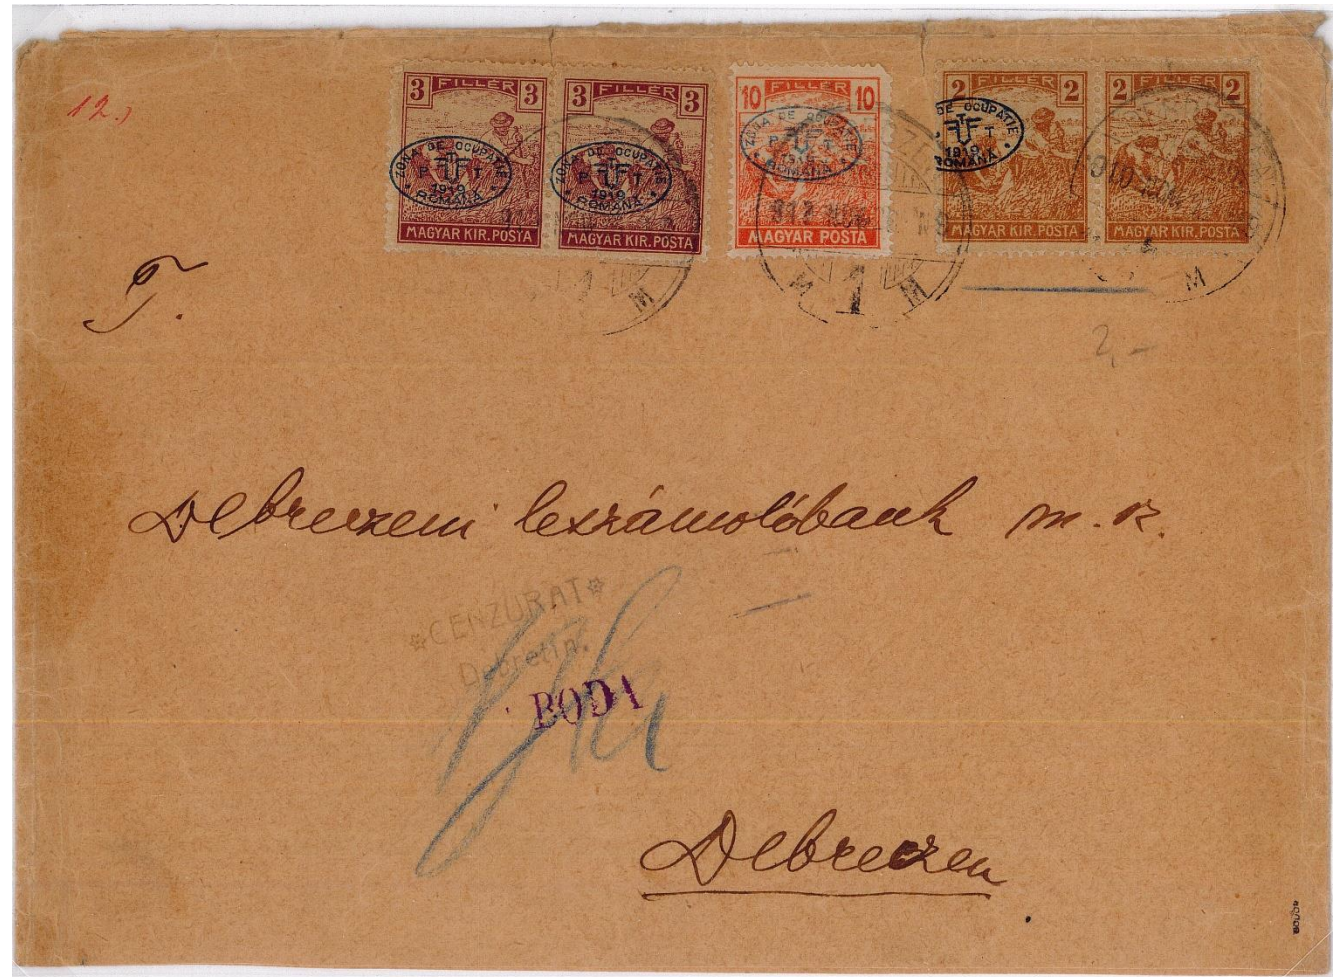 12.)
3 FILLÉR 3
ZONA DE OCUPATIE
P T T
1919
ROMÂNĂ
MAGYAR KIR. POSTA
3 FILLÉR 3
ZONA DE OCUPATIE
P T T
1919
ROMÂNĂ
MAGYAR KIR. POSTA
10 FILLÉR 10
ZONA DE OCUPATIE
P T T
1919
ROMÂNĂ
MAGYAR POSTA
2 FILLÉR 2
DE OCUPATIE
T
1919
ROMÂNĂ
MAGYAR KIR. POSTA
2 FILLÉR 2
MAGYAR KIR. POSTA
1 M
1 M
M
2,-
T.
Debreczeni leszámolóbank m. sz.
*CENZURAT*
Debretin.
BODA
Debreczen
BODOR